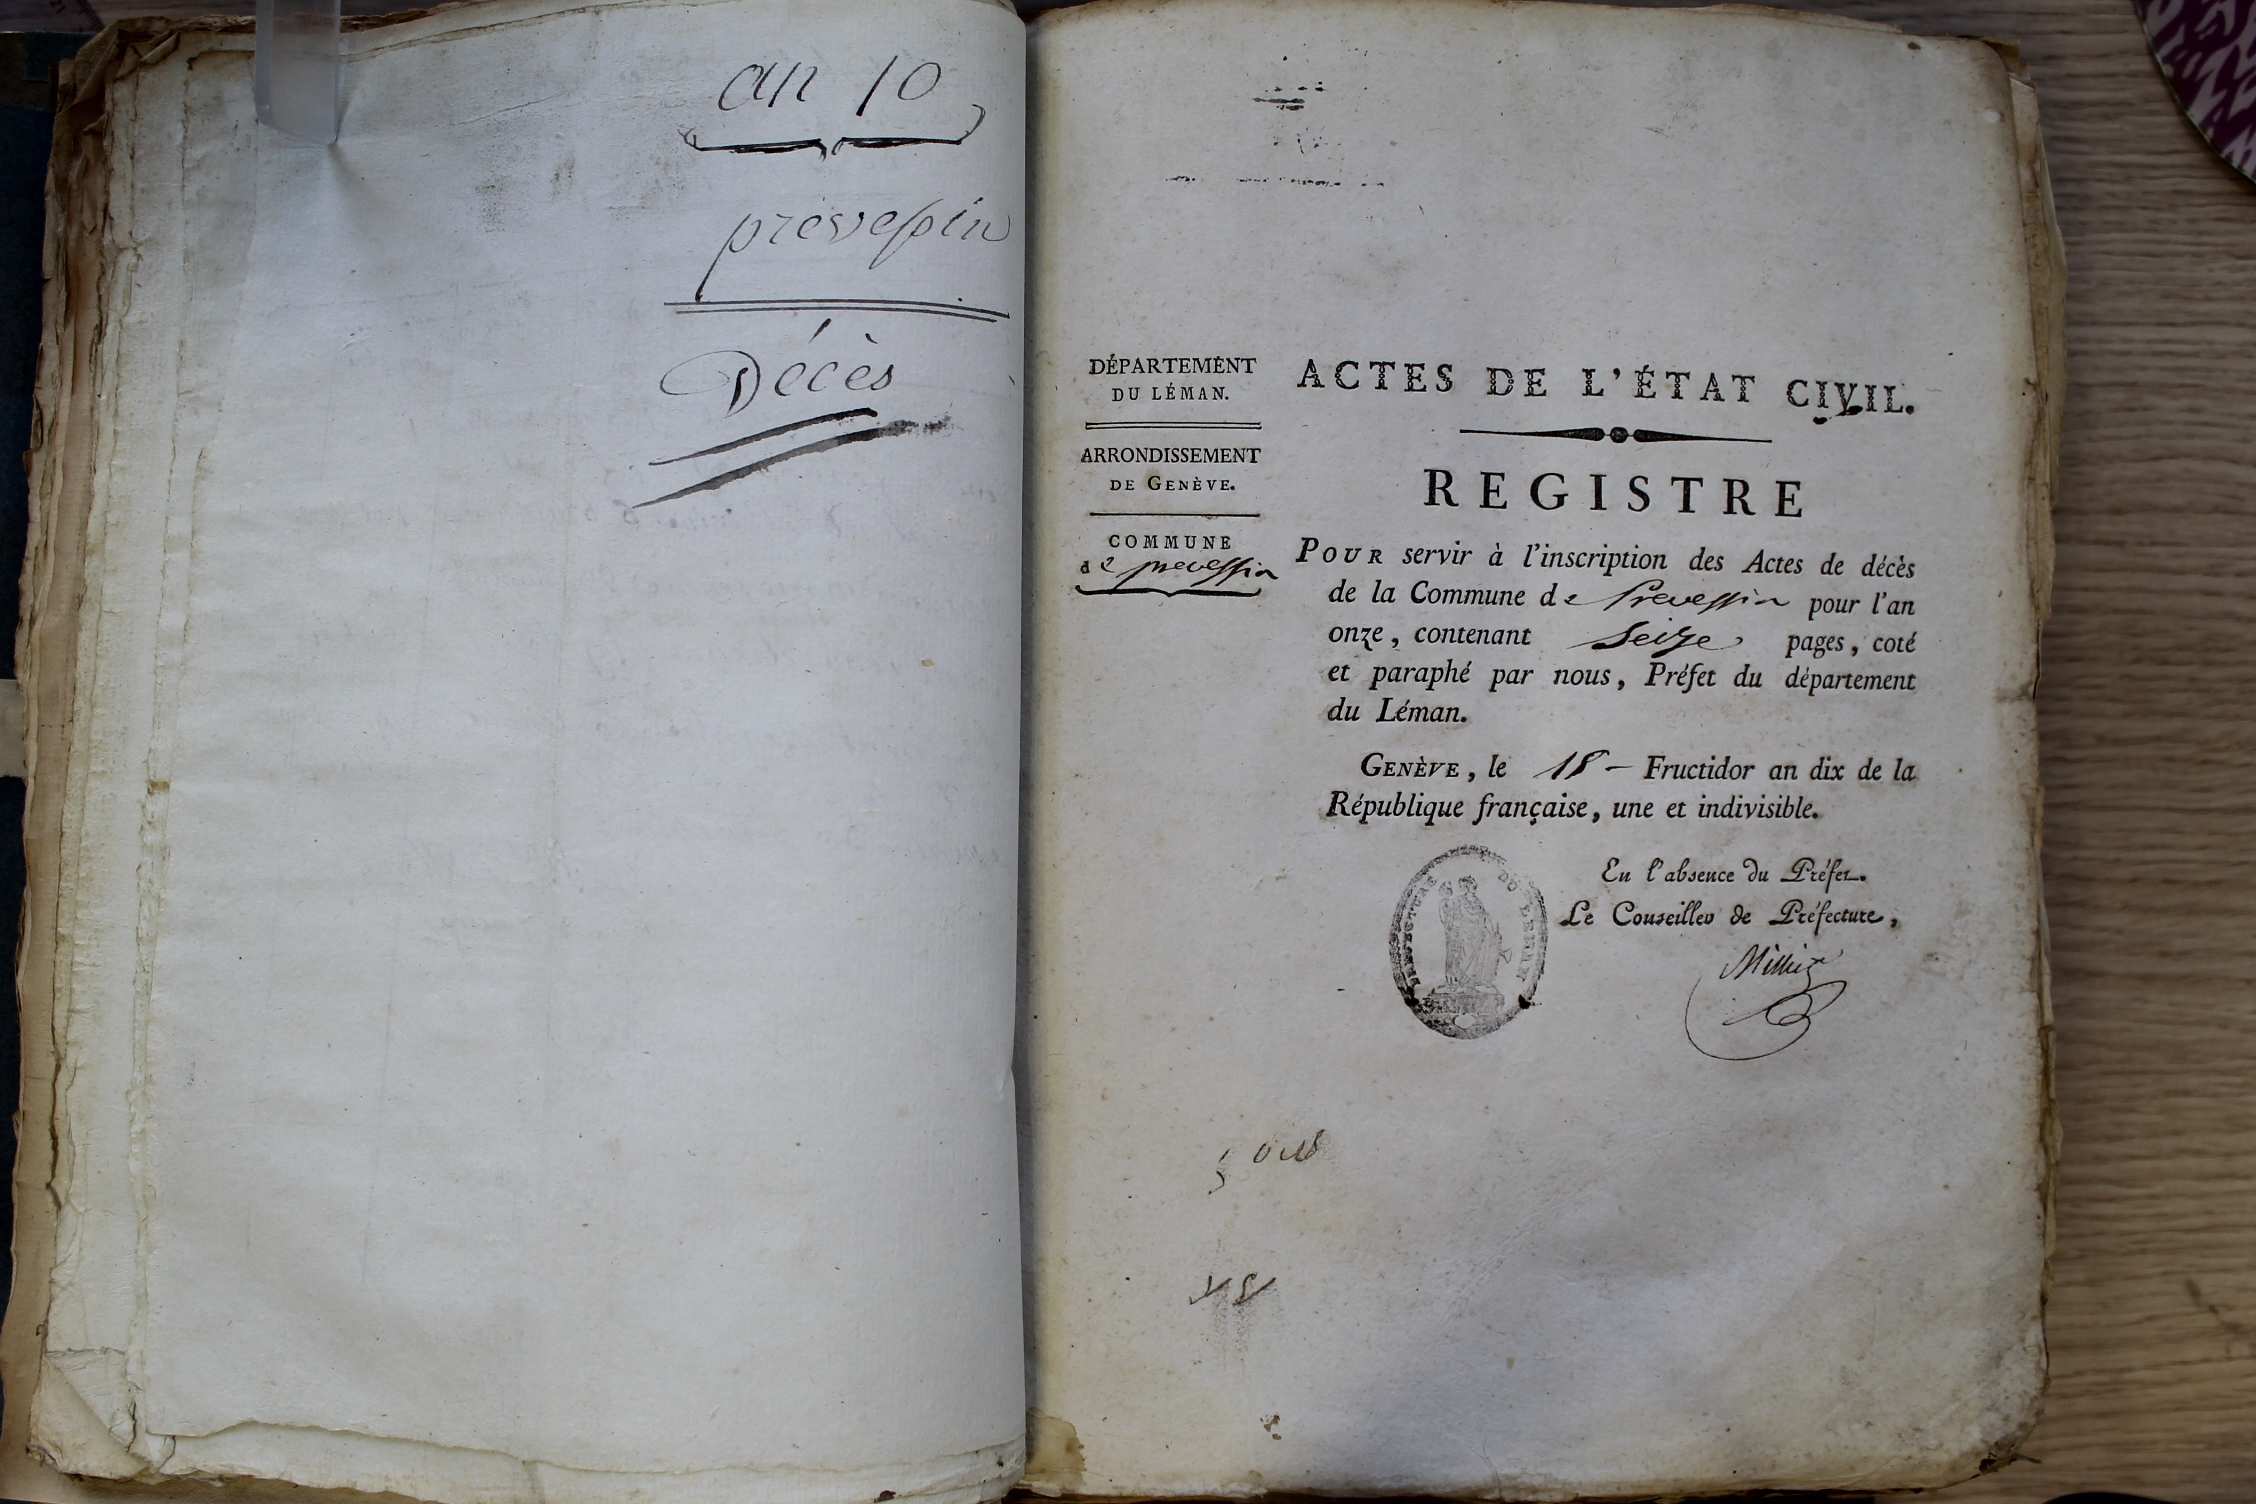 an 10
prévessin
Décès
DÉPARTEMENT
DU LÉMAN.
ARRONDISSEMENT
DE GENÈVE.
COMMUNE
de prevessin
ACTES DE L'ÉTAT CIVIL.
REGISTRE
POUR servir à l'inscription des Actes de décès
de la Commune de Prevessin pour l'an
onze, contenant Seize pages, coté
et paraphé par nous, Préfet du département
du Léman.
GENÈVE, le 18 — Fructidor an dix de la
République française, une et indivisible.
PREFECTURE DU LEMAN
En l'absence du Préfet.
Le Conseiller de Préfecture,